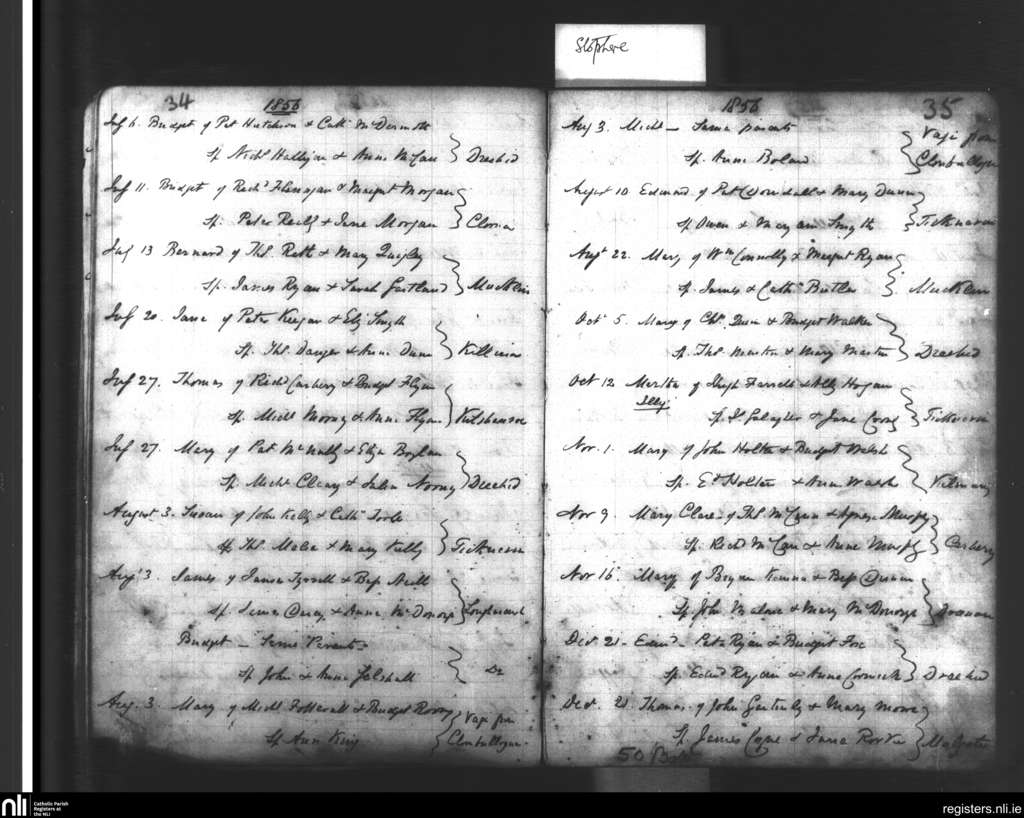 Slophere
34 1856
July 6. Bridget of Pat Hutchison & Cathe McDermott
Sp. Nichs Halligan & Anne McCann Dreshid
July 11. Bridget of Richd Flanagan & Margret Morgan
Sp. Peter Reilly & Jane Morgan Clonia
July 13 Bernard of Ths. Rett & Mary Quigley
Sp. James Ryan & Sarah Gartland Mucklin
July 20. Jane of Peter Keegan & Eliz Smyth
Sp. Ths. Danger & Anne Dunn Killinia
July 27. Thomas of Richd Carbery & Bridget Flynn
Sp. Michl Moony & Anne Flynn
July 27. Mary of Pat McNally & Eliza Boylan
Sp. Michl Cleary & Noony Dreshid
August 3. Susan of John Kelly & Cathe Toole
Sp Ths. Malia & Mary Kelly Ticknevin
Aug. 3 James of James Tyrrell & Bess Neill
Sp. James & Anne McDonogh
Bridget — Same Parents
Sp John & Anne Do
Aug. 3. Mary of Michl & Bridget Rorry Vagi from
Sp Ann King Clonbullogue.
1856 35
Aug 3. Michl — Same parents Vagi from
Sp. Anne Boland Clonbullogue
August 10 Edward of Pat & Mary Dunn
Sp Owen & Mary ann Smyth Ticknevin
Augt 22. Mary of Wm Connolly & Margret Ryan
Sp. James & Cathe Butler Mucklin
Octr 5. Mary of Chs. Quin & Bridget Walker
Sp. Ths. Martin & Mary Martin Dreshid
Oct 12 Martha of Hugh Farrell & Ally Hogan
Illy.
Sp. Js Galagher & Jane Ticknevin
Nov. 1. Mary of John Holton & Bridget Walsh
Sp. Ed Holton & Anne Walsh Kilmurry
Nov 9. Mary Clare of Ths McCann & Agnes Murphy
Sp. Richd McCann & Anne Murphy Carbery
Nov 16. Mary of Bryan & Bess Dunn
Sp. John Malone & Mary McDonogh
Decr 21. Edwd — Peter Ryan & Bridget Fox
Sp. Edwd Ryan & Anne Cormick Dreshid
Decr. 21 Thomas of John & Mary Moore
Sp. James & Jane Rorke
50 Bap
nli Catholic Parish
Registers at
the NLI
registers.nli.ie